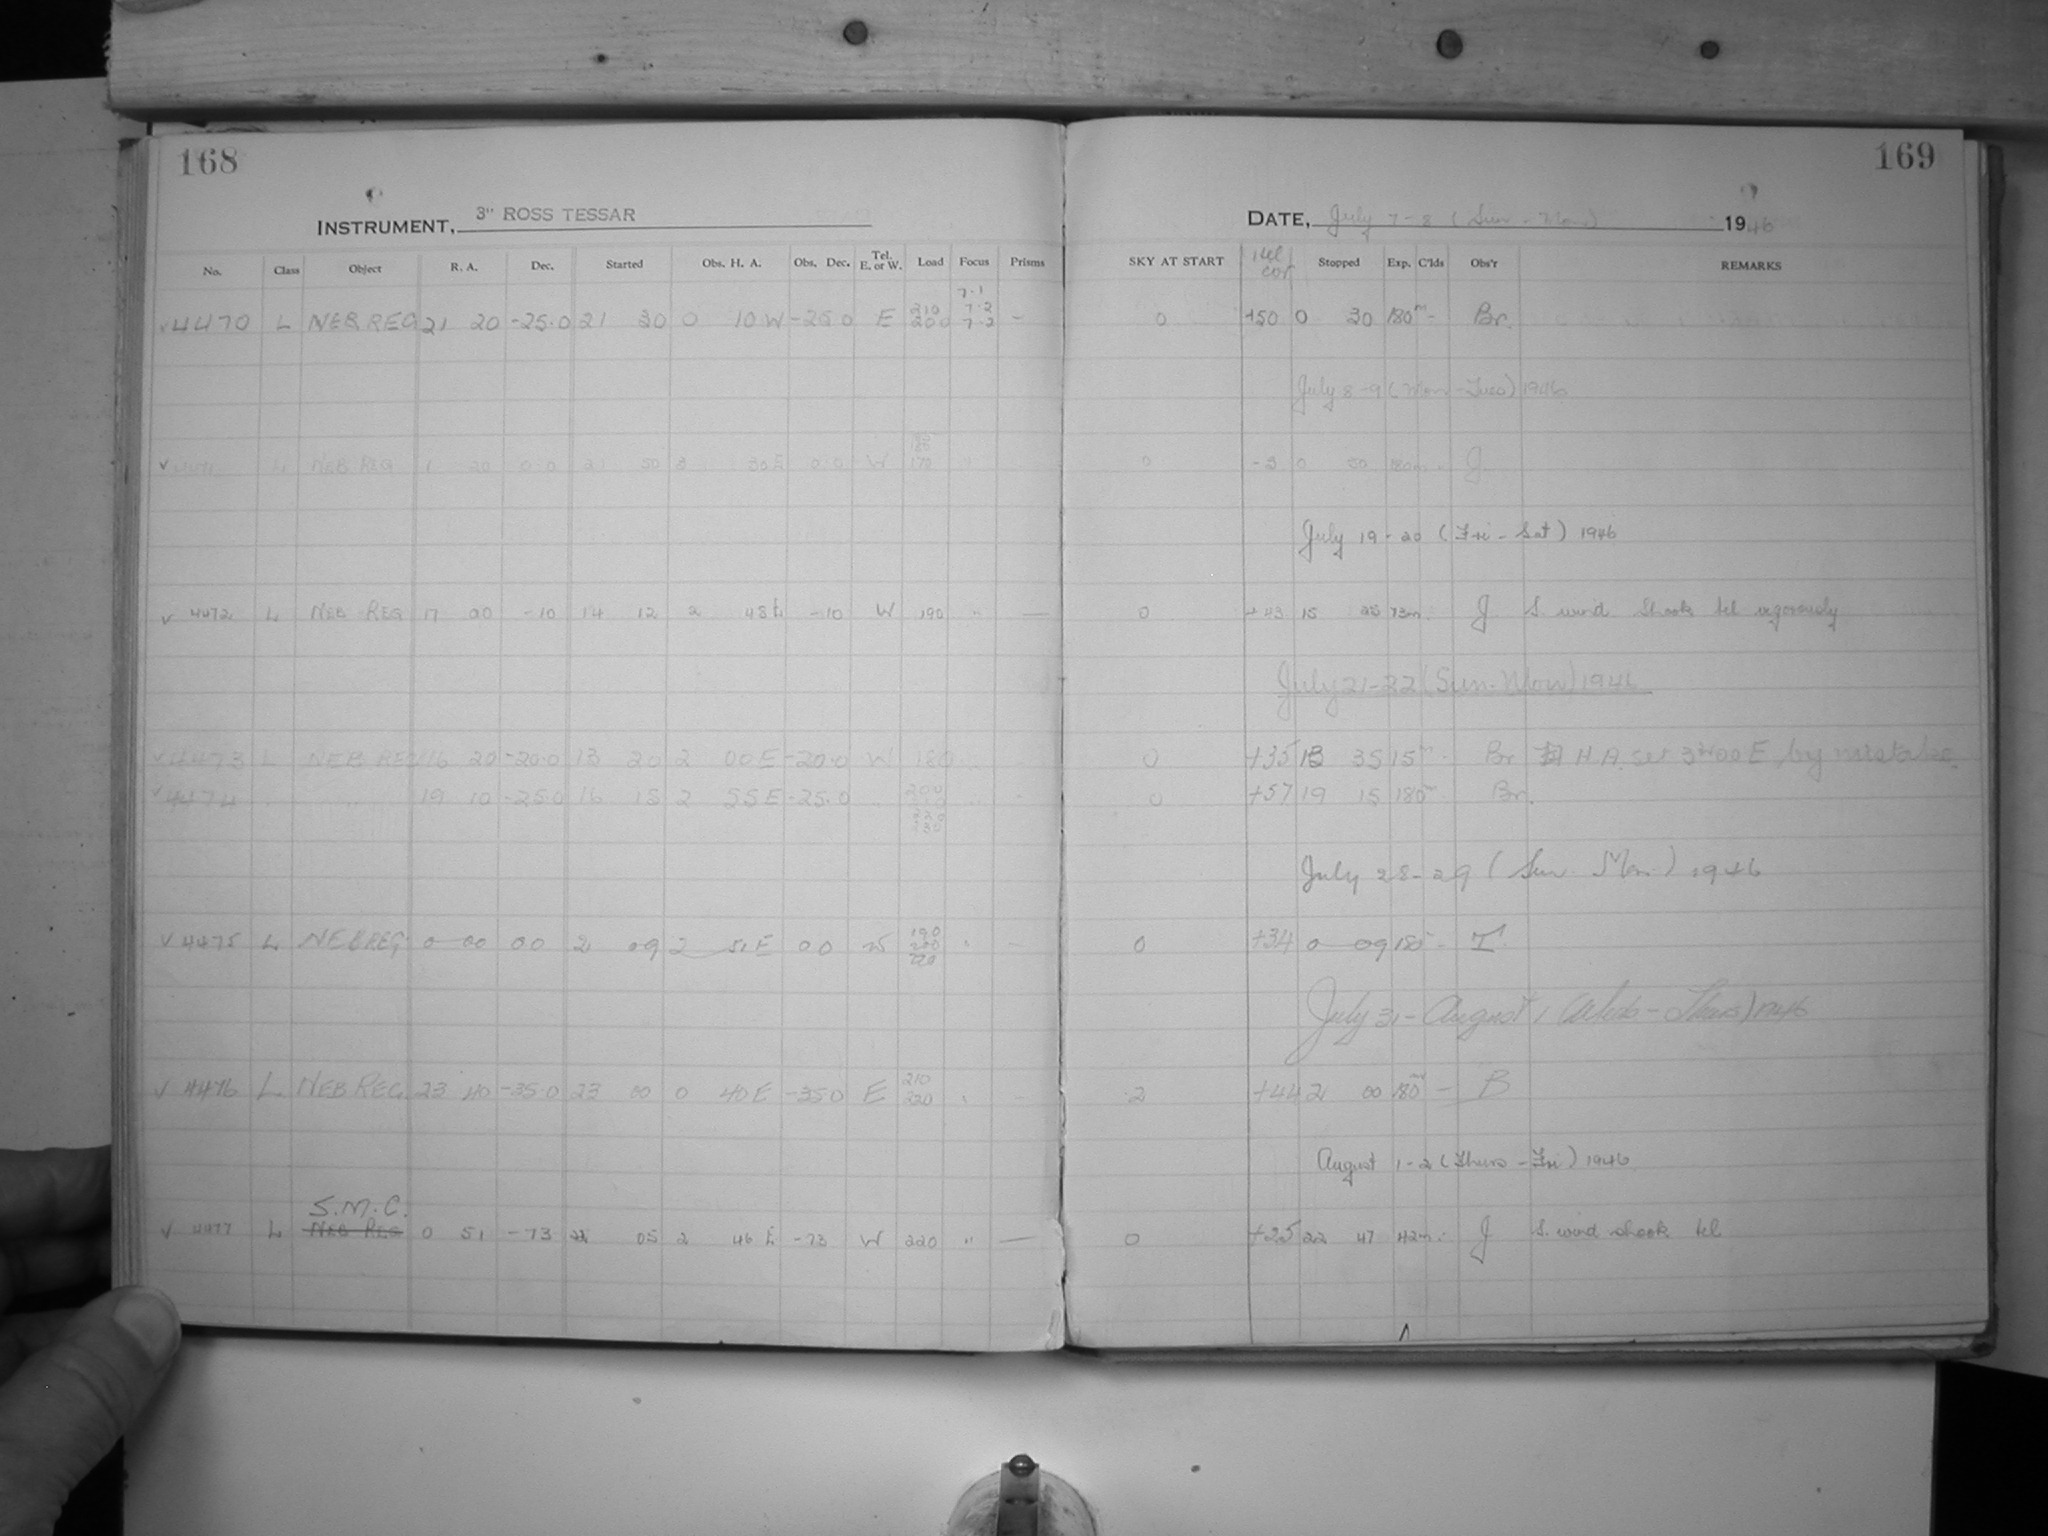 168
INSTRUMENT, 3" ROSS TESSAR
No. Class Object R. A. Dec. Started Obs. H. A. Obs. Dec. Tel. E. or W. Load Focus Prisms
7.1
210 7.2
✓4470 L NEB REG 21 20 -25.0 21 30 0 10 W -25.0 E 200 7.2 -
✓ L NEB REG 1 20 0.0 21 50 3 30 E 0.0 W 170 "
✓ 4472 L NEB REG 17 00 -10 14 12 2 48 E -10 W 190 " —
✓4473 L NEB REG 16 20 -20.0 13 20 2 00 E -20.0 W 180
✓4474 " 19 10 -25.0 16 15 2 55 E -25.0 " 200
190
✓ 4475 L NEB REG 0 00 0.0 21 09 2 51 E 0.0 W 200 "
220
210
✓ 4476 L NEB REG 23 40 -35.0 23 00 0 40 E -35.0 E 220 "
S.M.C.
✓ 4477 L NEB REG 0 51 -73 22 05 2 46 E -73 W 220 " —
169
DATE, July 7-8 (Sun - Mon) 1946
SKY AT START tel cor Stopped Exp. C'lds Obs'r REMARKS
0 +50 0 30 180m - Br.
July 8-9 (Mon - Tues) 1946
0 -3 0 50 180m - J.
July 19-20 (Fri - Sat) 1946
0 +43 15 25 73m J S. wind shook tel vigorously
July 21-22 (Sun-Mon) 1946
0 +35 13 35 15m - Br H.A. set 3h00 E by mistake.
0 +57 19 15 180m Br.
July 28-29 (Sun Mon) 1946
0 +34 0 09 180 -
July 31 - August 1 (Wed - Thurs) 1946
2 +44 2 00 180m - B
August 1-2 (Thurs - Fri) 1946
0 +25 22 47 42m J S. wind shook tel